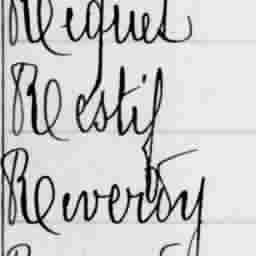 Riquet
Restif
Reverdy